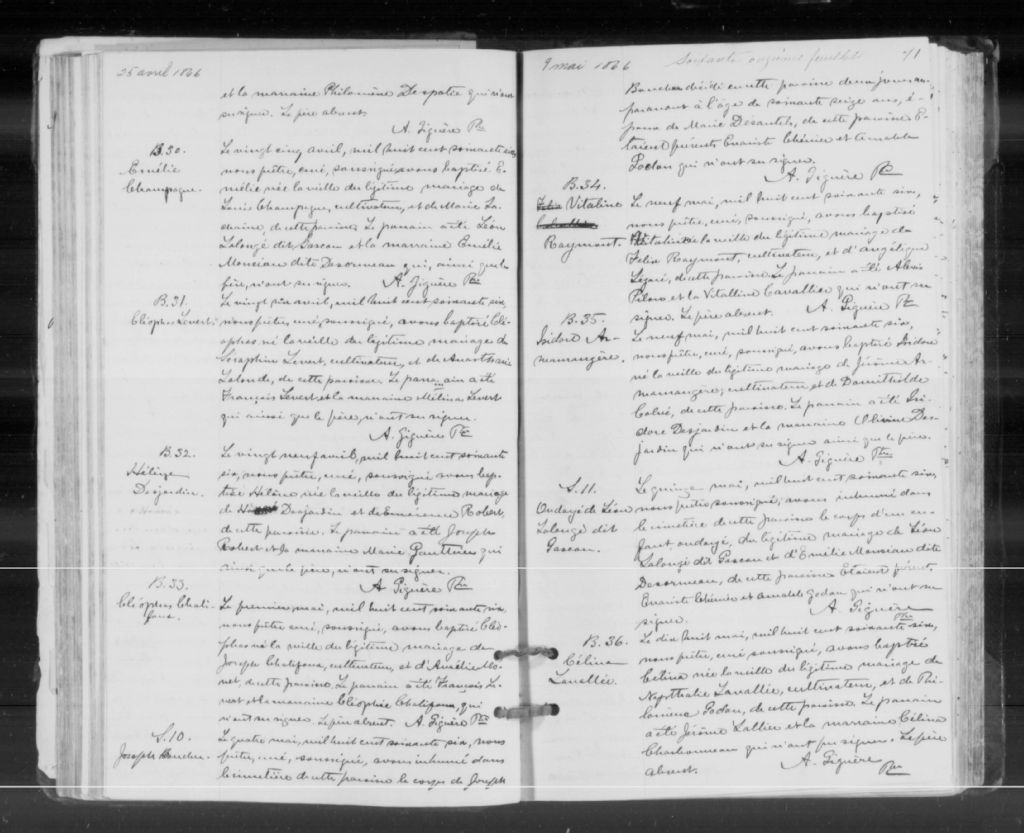 25 avril 1866
et la marraine Philomène Despatie qui n'ont
su signer. Le père absent.
A. Giguère Ptre
B.30.
Emélie
Champagne.
Le vingt cinq avril, mil huit cent soixante six,
nous prêtre, curé, soussigné, avons baptisé E-
mélie née la veille du légitime mariage de
Louis Champagne, cultivateur, et de Marie La-
, de cette paroisse. Le parrain a été Léon
Lalongé dit Gascon et la marraine Emélie
Monciau dite Desormeau qui, ainsi que le
père, n'ont su signer. A. Giguère Ptre
B.31.
Cléophas Levert.
Le vingt six avril, mil huit cent soixante six,
nous prêtre, curé, soussigné, avons baptisé Clé-
ophas né la veille du légitime mariage de
Séraphin Levert, cultivateur, et de
Lalonde, de cette paroisse. Le parrain a été
François Levert et la marraine Mélina Levert
qui ainsi que le père, n'ont su signer.
A. Giguère Ptre
B.32.
Hélène
Desjardin.
Le vingt neuf avril, mil huit cent soixante
six, nous prêtre, curé, soussigné avons bap-
tisé Hélène née la veille du légitime mariage
de Desjardin et de Emérence Robert,
de cette paroisse. Le parrain a été Joseph
Robert et la marraine Marie Gauthier qui
ainsi que le père, n'ont su signer.
A. Giguère Ptre
B.33.
Cléophas Chali-
foux.
Le premier mai, mil huit cent soixante six,
nous prêtre curé, soussigné, avons baptisé Cléo-
phas né la veille du légitime mariage de
Joseph Chalifoux, cultivateur, et d'Amélie Mo-
net, de cette paroisse. Le parrain a été François Li-
et la marraine Cléophie Chalifoux, qui
n'ont su signer. Le père absent. A. Giguère Ptre
S.10.
Joseph Boucher.
Le quatre mai, mil huit cent soixante six, nous
prêtre, curé, soussigné, avons inhumé dans
le cimetière de cette paroisse le corps de Joseph
9 mai 1866 Soixante onzième feuillet 71
Boucher décédé en cette paroisse deux jours au-
paravant à l'âge de soixante seize ans, é-
poux de Marie Désautels, de cette paroisse. E-
taient présents Evariste Chénier et Amable
Godon qui n'ont su signer.
A. Giguère Ptre
B.34.
Vitaline
Raymont.
Le neuf mai, mil huit cent soixante six,
nous prêtre, curé, soussigné, avons baptisé
Vitaline née la veille du légitime mariage de
Félix Raymont, cultivateur, et d'Angélique
Légaré, de cette paroisse. Le parrain a été Alexis
Pilon et la Vitalline Cavallier qui n'ont su
signer. Le père absent. A. Giguère Ptre
B.35.
Isidore Ar-
mamgère.
Le neuf mai, mil huit cent soixante six,
nous prêtre, curé, soussigné, avons baptisé Isidore
né la veille du légitime mariage de Jérôme Ar-
mamgère, cultivateur, et de Domithilde
, de cette paroisse. Le parrain a été Isi-
dore Desjardin et la marraine Olivine Des-
jardin qui n'ont su signer ainsi que le père.
A. Giguère Ptre
S.11.
Ondoyé de Léon
Lalongé dit
Gascon.
Le quinze mai, mil huit cent soixante six,
nous prêtre soussigné, avons inhumé dans
le cimetière de cette paroisse le corps d'un en-
fant ondoyé, du légitime mariage de Léon
Lalongé dit Gascon et d'Emélie Monciau dite
Desormeau, de cette paroisse. Etaient présents
Evariste Chénier et Amable Godon qui n'ont su
signer.
A. Giguère
Ptre
B.36.
Célina
Lavallée.
Le dix huit mai, mil huit cent soixante six,
nous prêtre, curé, soussigné, avons baptisé
Célina née la veille du légitime mariage de
Nephthalie Lavallée, cultivateur, et de Phi-
lomène Godon, de cette paroisse. Le parrain
a été Jérôme Lallier et la marraine Célina
Charbonneau qui n'ont pu signer. Le père
absent.
A. Giguère
Ptre